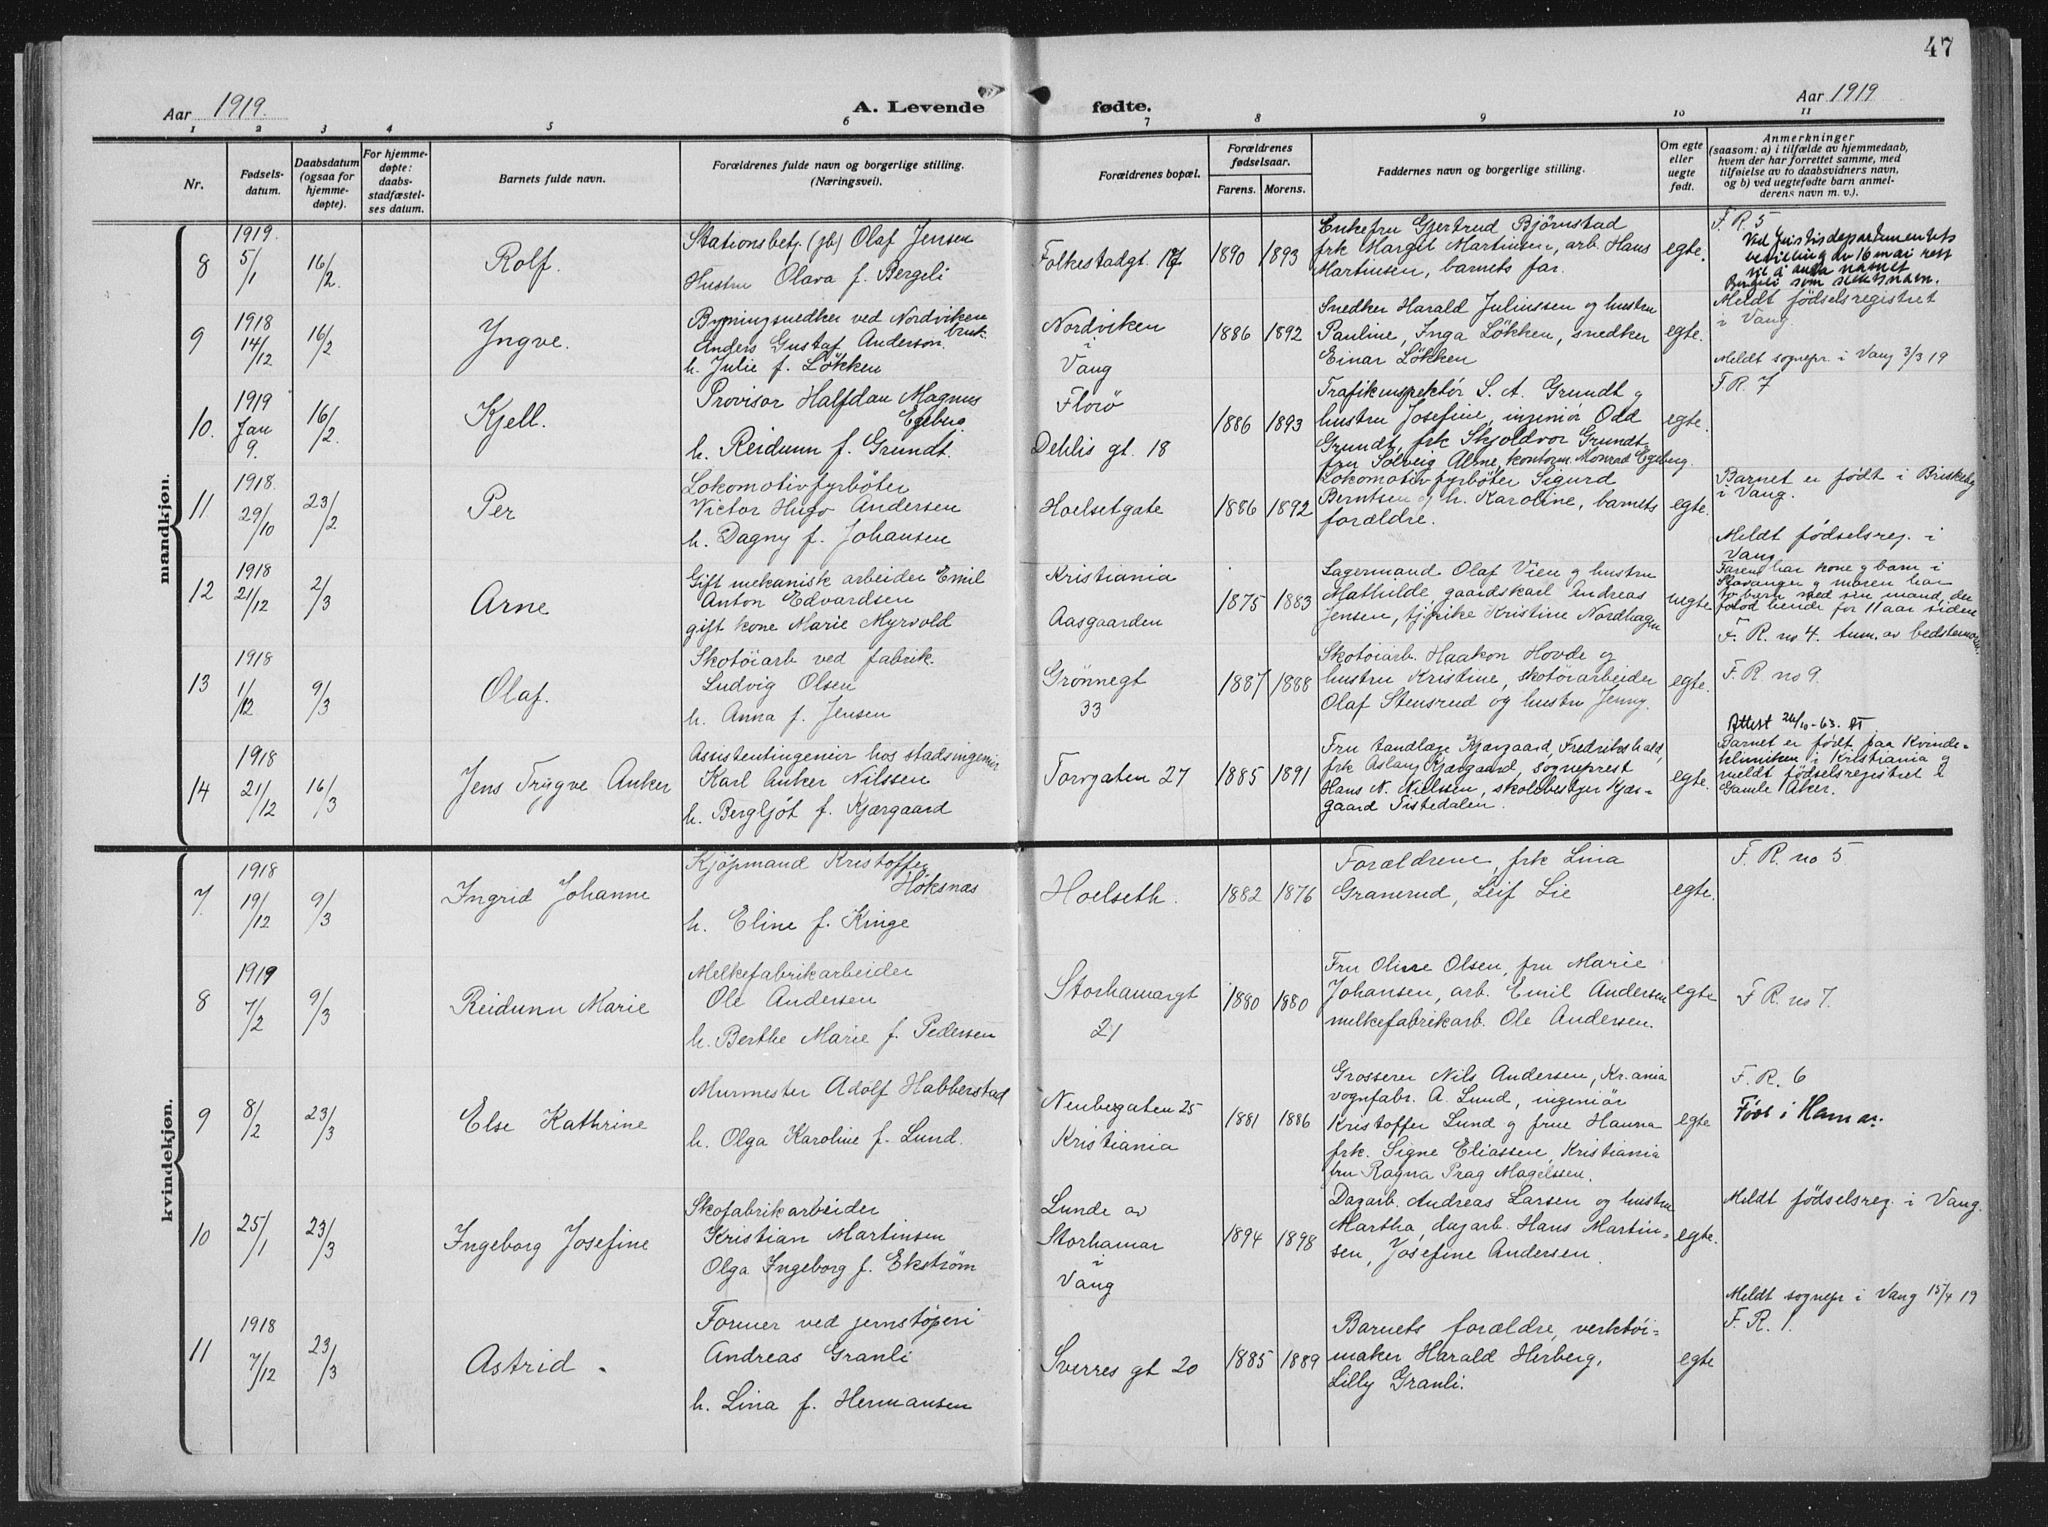 47
Aar 1919.
A. Levende fødte.
Aar 1919
1 2 3 4 5 6 7 8 9 10 11
Nr.
Fødsels-
datum.
Daabsdatum
(ogsaa for
hjemme-
døpte).
For hjemme-
døpte:
daabs-
stadfæstel-
ses datum.
Barnets fulde navn.
Forældrenes fulde navn og borgerlige stilling.
(Næringsvei).
Forældrenes bopæl.
Forældrenes
fødselsaar.
Farens. Morens.
Faddernes navn og borgerlige stilling.
Om egte
eller
uegte
født.
Anmerkninger
(saasom: a) i tilfælde av hjemmedaab,
hvem der har forrettet samme, med
tilføielse av to daabsvidners navn,
og b) ved uegtefødte barn anmel-
derens navn m. v.).
mandkjøn.
8
1919.
5/1
16/2.
Rolf.
Stationsbetj. (jb) Olaf Jensen
Hustru Olava f. Bergeli
Folkestadgt. 17
1890 1893
Enkefru Gjertrud Bjørnstad
frk Margit Martinsen, arb. Hans
Martinsen, barnets far.
egte.
F. R. 5
Ved Justisdepartementets
bevilling av 16 mai rett
til å anta navnet
Bergeli som slektsnavn.
9
1918
14/12
16/2
Yngve.
Bygningsnedker ved Nordviken
bruk
Anders Gustaf Anderson.
h. Julie f. Løkken
Nordviken
i
Vang
1886 1892
Snedker Harald Juliussen og hustru
Pauline, Inga Løkken, snedker
Einar Løkken
egte.
Meldt fødselsregistret
i Vang.
Meldt sognepr. i Vang 3/3 19
10.
1919
Jan
9.
16/2.
Kjell.
Provisor Halfdan Magnus
Egeberg.
h. Reidunn f. Grundt.
Florø
Dehlis gt. 18
1886 1893
Trafikinspektør S. A. Grundt g
hustru Josefine, ingeniør Odd
Grundt, frk Skjoldvor Grundt,
fru Solveig Alme, kontorm. Monrad Egeberg.
egte.
F. R. 7
11.
1918.
29/10
23/2
Per
Lokomotivfyrbøter
Victor Hugo Andersen
h. Dagny f. Johansen
Hoelsetgate
1886 1892
Lokomotivfyrbøter Sigurd
Berntsen og h. Karoline, barnets
forældre.
egte.
Barnet er født i Briskeby
i Vang.
Meldt fødselsreg. i
Vang
12
1918
21/12
2/3
Arne
Gift mekanisk arbeider Emil
Anton Edvardsen
gift kone Marie Myrvold
Kristiania
Aasgaarden
1875 1883
Lagermand Olaf Vien g hustru
Mathilde, gaardskarl Andreas
Jensen, tj.pike Kristine Nordhagen
uegte
Faren har kone g barn i
Stavanger g moren har
to barn med sin mand, der
forlod hende for 11 aar siden
F. R. no 4. Anm. av bedstemoren.
13
1918
1/12
9/3
Olaf.
Skotøiarb. ved fabrik.
Ludvig Olsen
h. Anna f. Jensen
Grønnegt
33
1887 1888
Skotøiarb. Haakon Hovde g
hustru Kristine, skotøiarbeider
Olaf Stensrud og hustru Jenny.
egte.
F. R. no 9.
Attest 26/10-63.
14
1918
21/12
16/3
Jens Trygve Anker
Assistentingeniør hos stadsingeniør
Karl Anker Nilssen
h. Bergljót f. Kjærgaard
Torvgaten 27
1885 1891
Fru tandlæge Kjærgaard, Fredrikshald,
frk Aslaug Kjærgaard, sogneprest
Hans N. Nielssen, skolebestyr Kjær-
gaard Tistedalen.
egte.
Barnet er født paa Kvinde-
klinikken i Kristiania g
meldt fødselsregistret i
Gamle Aker.
kvindekjøn.
7.
1918
19/12
9/3
Ingrid Johanne
Kjøpmand Kristoffer
Høksnas
h. Eline f. Kinge
Hoelseth.
1882 1876
Forældrene, frk Lina
Granerud, Leif Lie
egte.
F. R. no 5
8
1919
7/2
9/3
Reidunn Marie
Melkefabrikarbeider
Ole Andersen
h. Berthe Marie f. Pedersen
Storhamargt
21
1880 1880
Fru Oline Olsen, fru Marie
Johansen, arb. Emil Andersen
melkefabrikarb. Ole Andersen.
egte
F. R. no 7.
9
8/2
23/3
Else Kathrine
Murmester Adolf Habberstad
h. Olga Karoline f. Lund.
Neubergaten 25
Kristiania
1881 1886
Grosserer Nils Andersen, Kr.ania
vognfabr. A. Lund, ingeniør
Kristoffer Lund g frue Hanna
frk. Signe Eliassen, Kristiania
fru Ragna Prag Magelssen.
egte
F. R. 6
Født i Hamar.
10
25/1
23/3
Ingeborg Josefine
Skofabrikarbeider
Kristian Martinsen
Olga Ingeborg f. Ekstrøm
Lunde av
Storhamar
i
Vang
1894 1898
Dagarb. Andreas Larsen og hustru
Martha, dagarb. Hans Martin-
sen, Josefine Andersen.
egte.
Meldt fødselsreg. i Vang.
Meldt sognepr i Vang 15/4 19
11
1918
7/12
23/3
Astrid
Former ved jernstøperi
Andreas Granli
h. Lina f. Hermansen
Sverres gt 20
1885 1889
Barnets forældre, verktøi-
maker Harald Herberg,
Lilly Granli.
egte
F. R. 1.